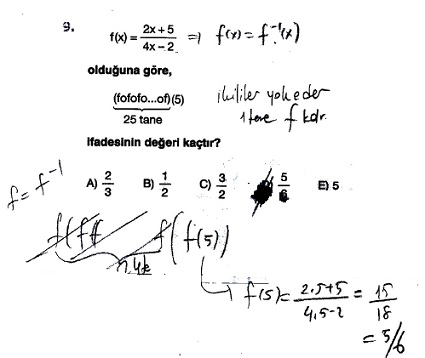 9. f(x) = 2x + 5 / 4x - 2 ⇒ f(x) = f⁻¹(x)
olduğuna göre,
(fofofo...of)(5) ikililer yokeder
25 tane 1 tane f kalır.
ifadesinin değeri kaçtır?
f = f⁻¹
A) 2/3 B) 1/2 C) 3/2 5/6 E) 5
f(f(f f(f(5))
f(5) = 2.5+5 / 4.5-2 = 15 / 18
= 5/6